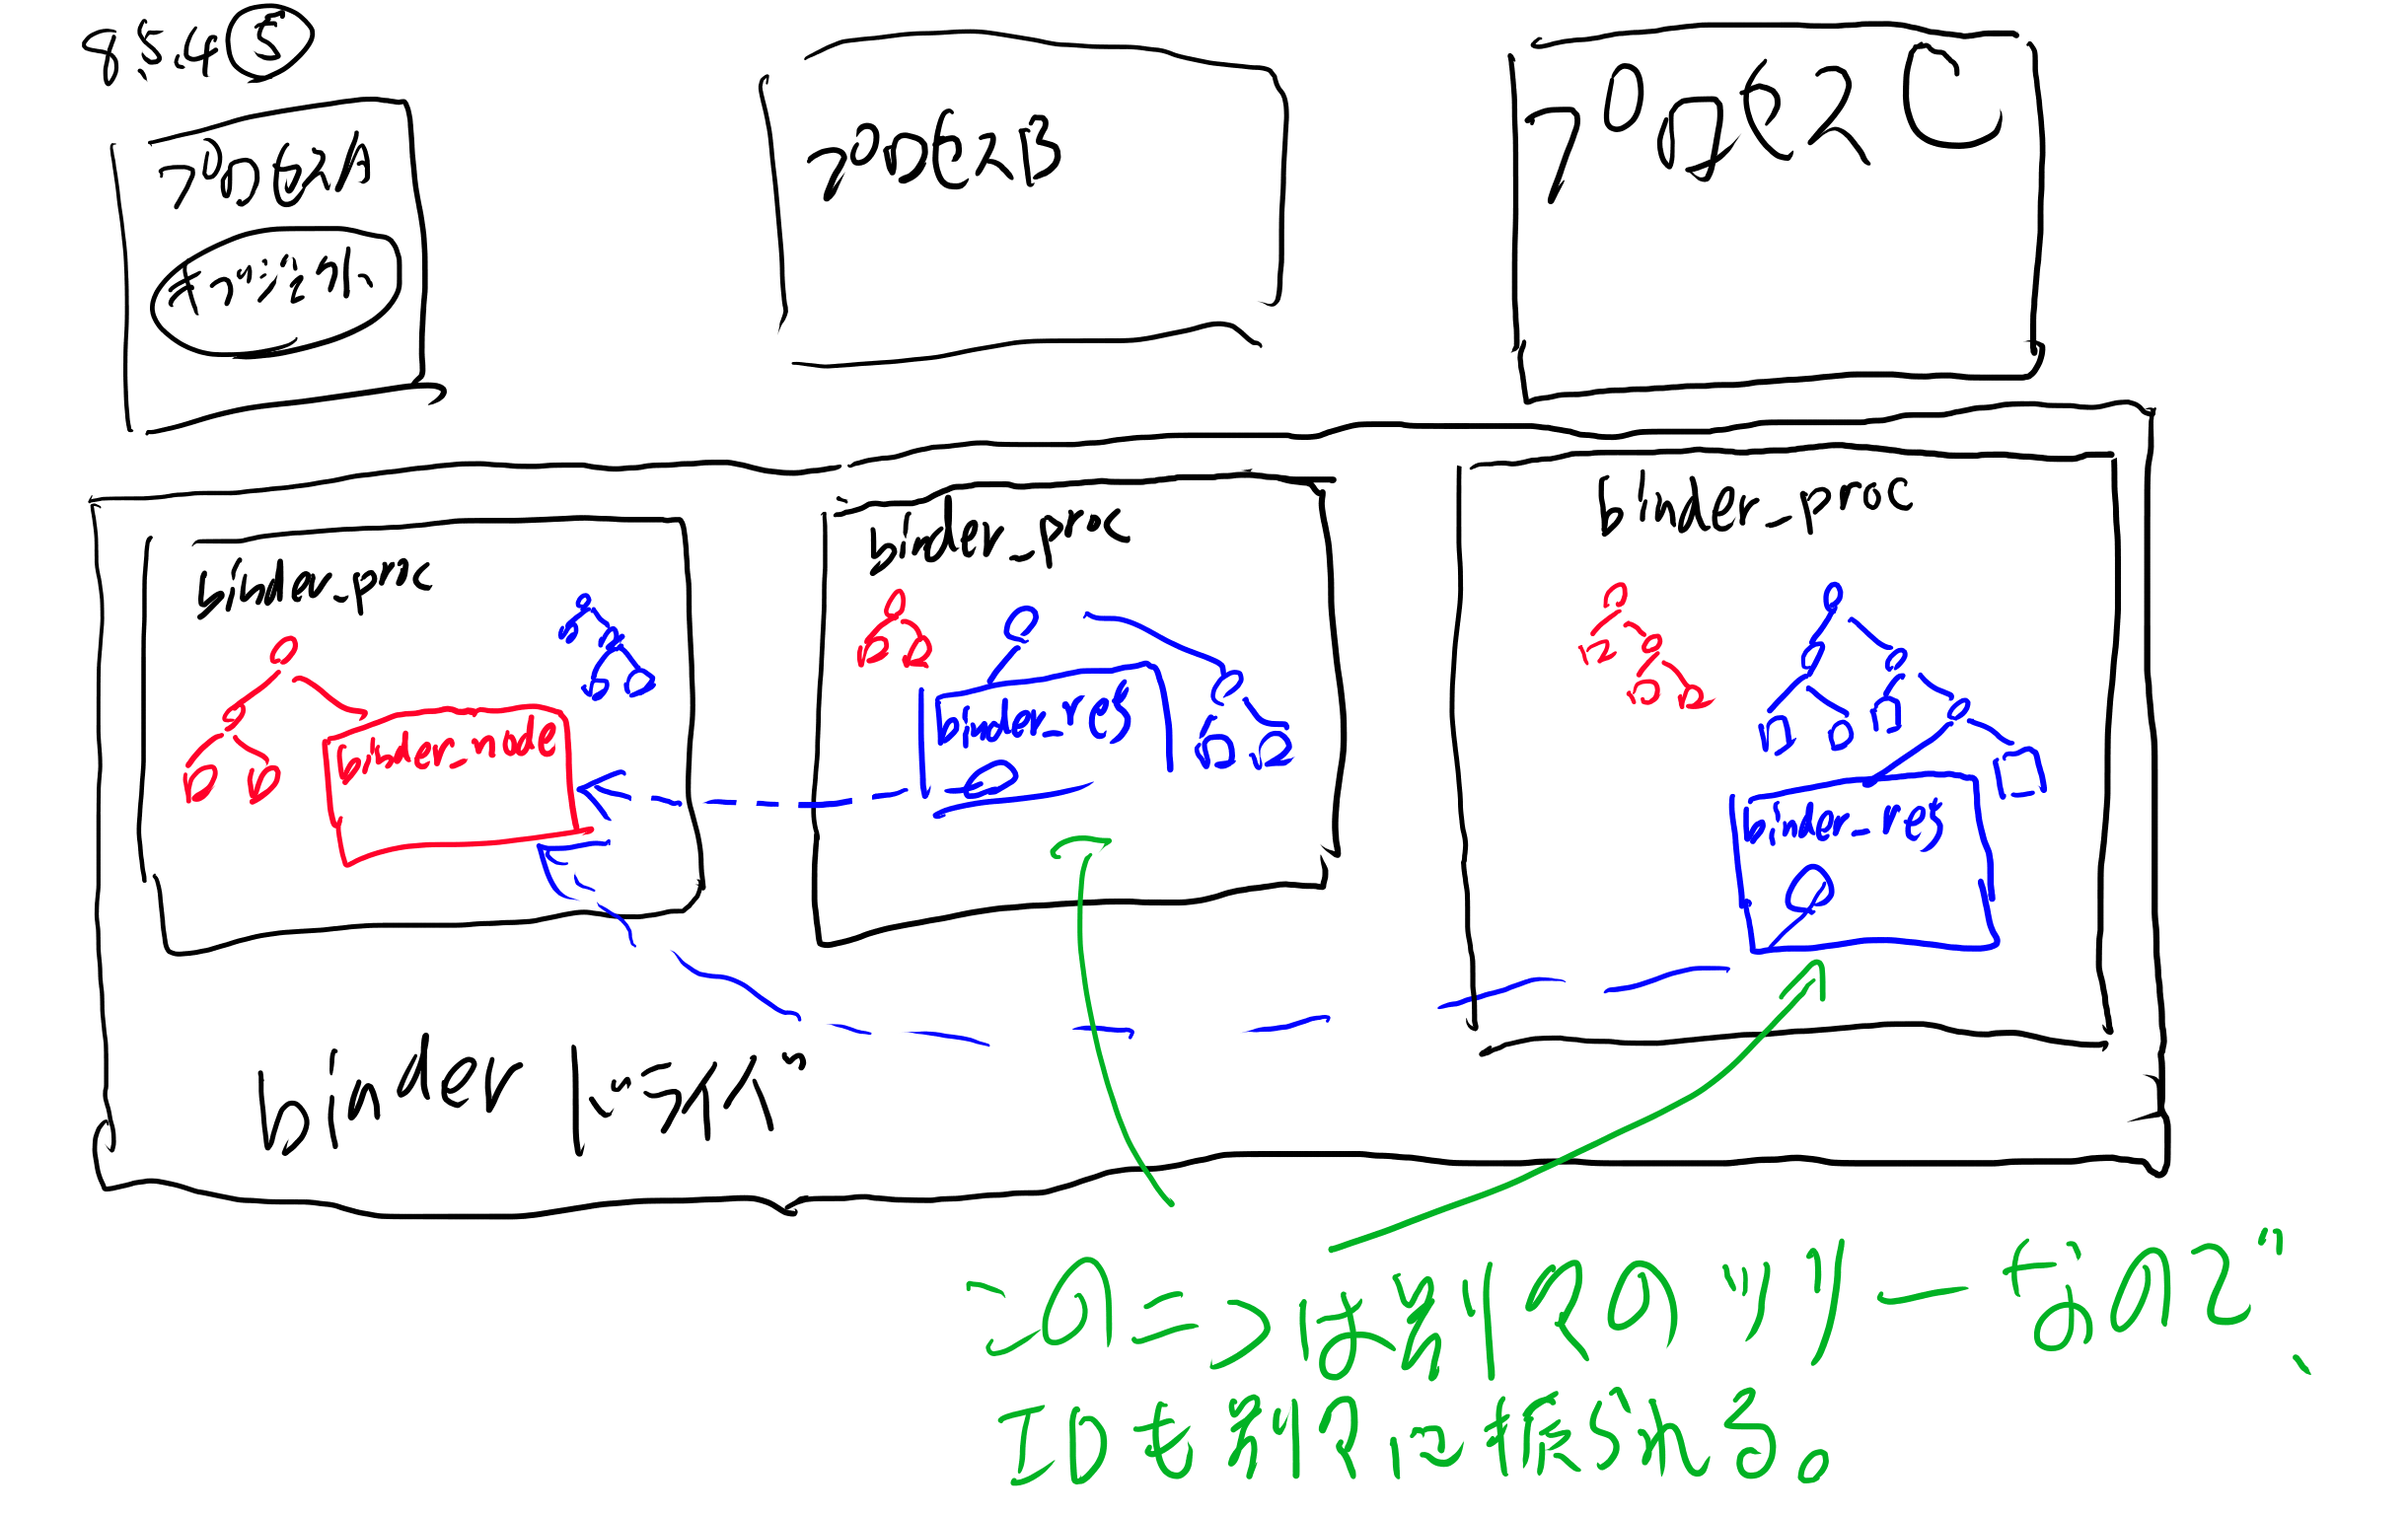 8.5.4 ⑤
プロセスA
オブジェクト
プロセスB
プロセスC
binder_proc
binder_proc
binder_proc
binder_node
binder_ref
binder_ref
binder ドライバ
この二つは別々のツリーなので、
IDも別々に振られる。